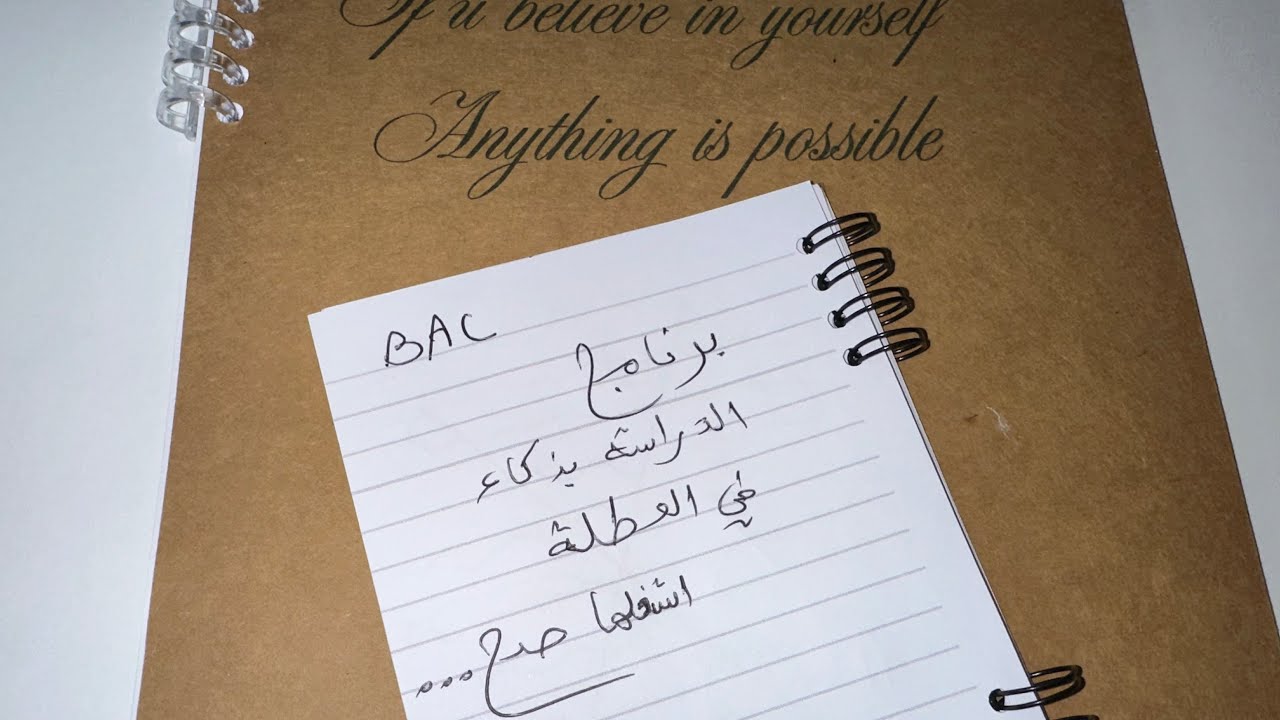 If u believe in yourself
Anything is possible
BAC
برنامج
الدراسة بذكاء
في العطلة
اشغلها صح...